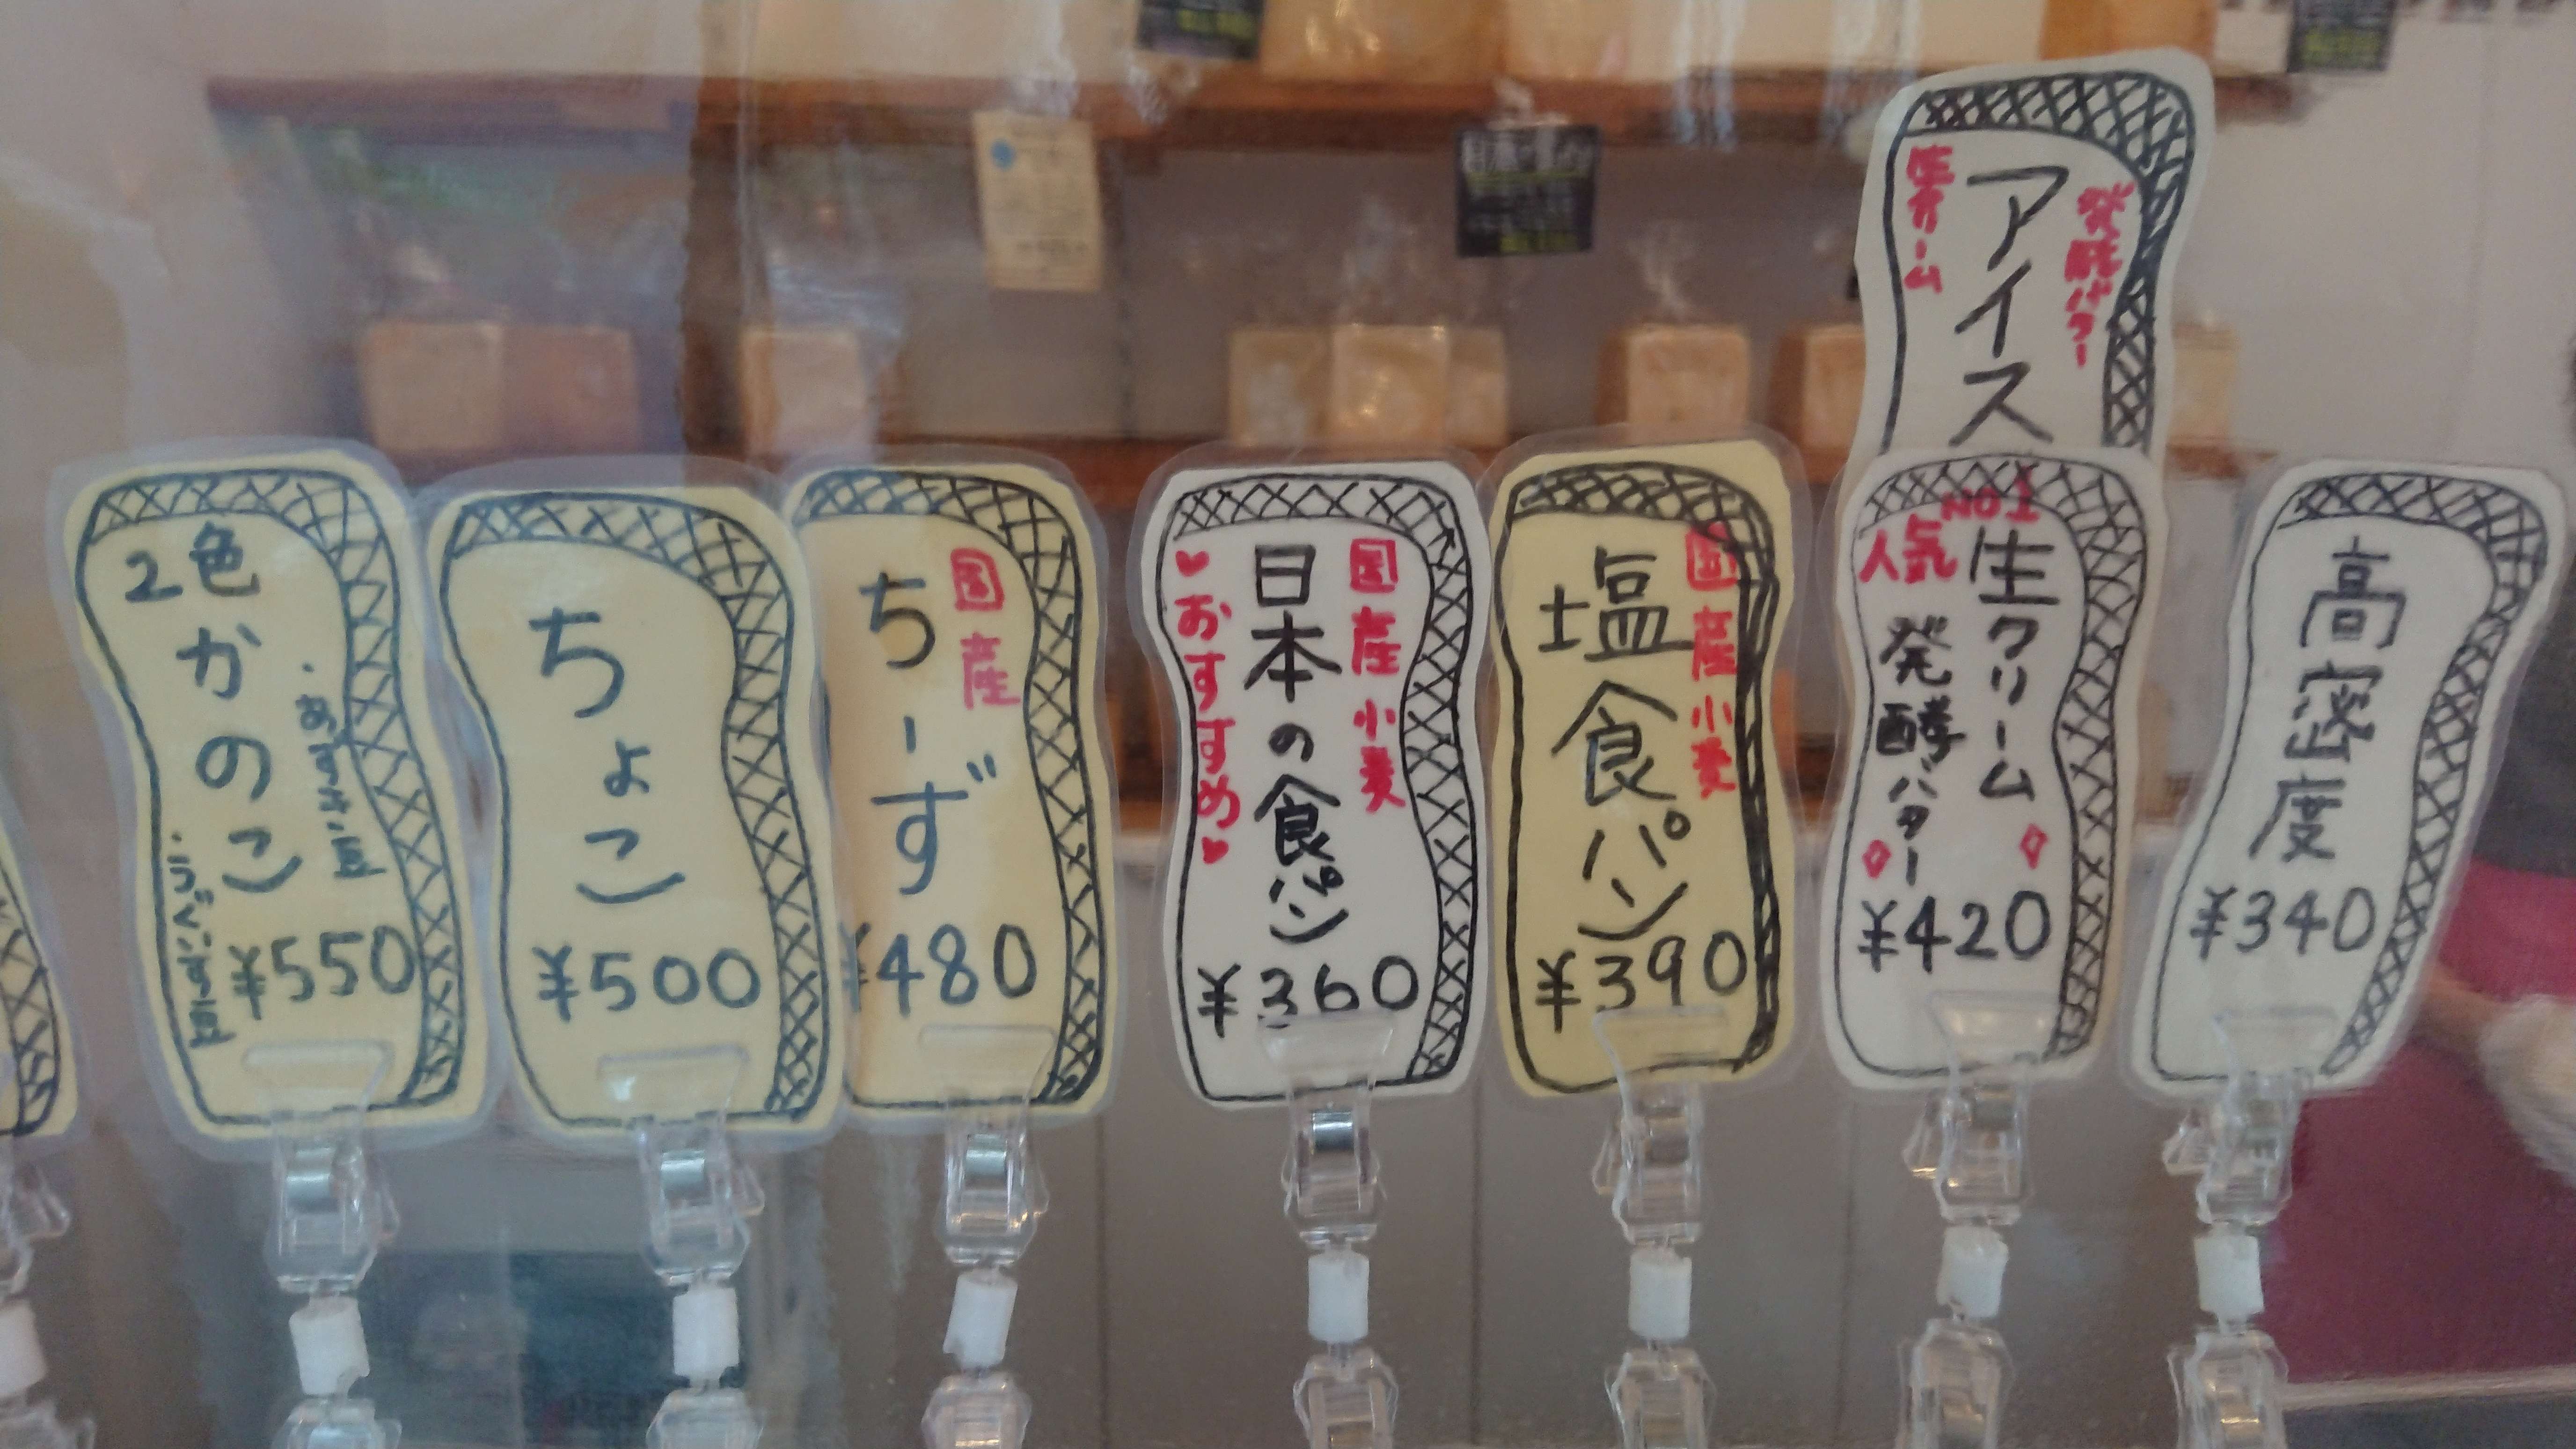 2色
かのこ
・あずき小豆
・うぐいす豆
¥550
ちょこ
¥500
国産
ちーず
¥480
国産小麦
日本の食パン
♥おすすめ♥
¥360
国産小麦
塩食パン
¥390
発酵バター
アイス
生クリーム
人気NO1
生クリーム
発酵バター
¥420
高密度
¥340